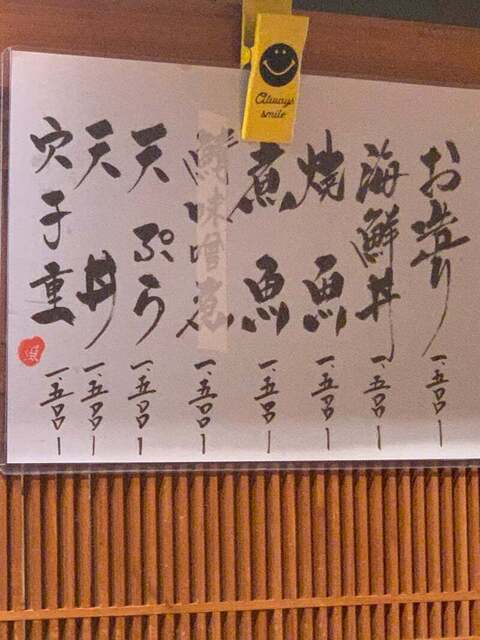 Always
smile
お造り 一、五〇〇ー
海鮮丼 一、五〇〇ー
焼魚 一、五〇〇ー
煮魚 一、五〇〇ー
味噌煮 一、五〇〇ー
天ぷら 一、五〇〇ー
天丼 一、五〇〇ー
穴子重 一、五〇〇ー